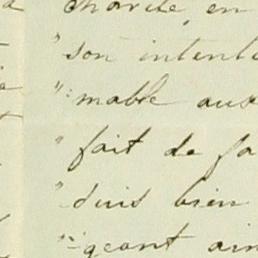 charité, en
" son intent
" mable aux
" fait de fa
" suis bien
" geant ain